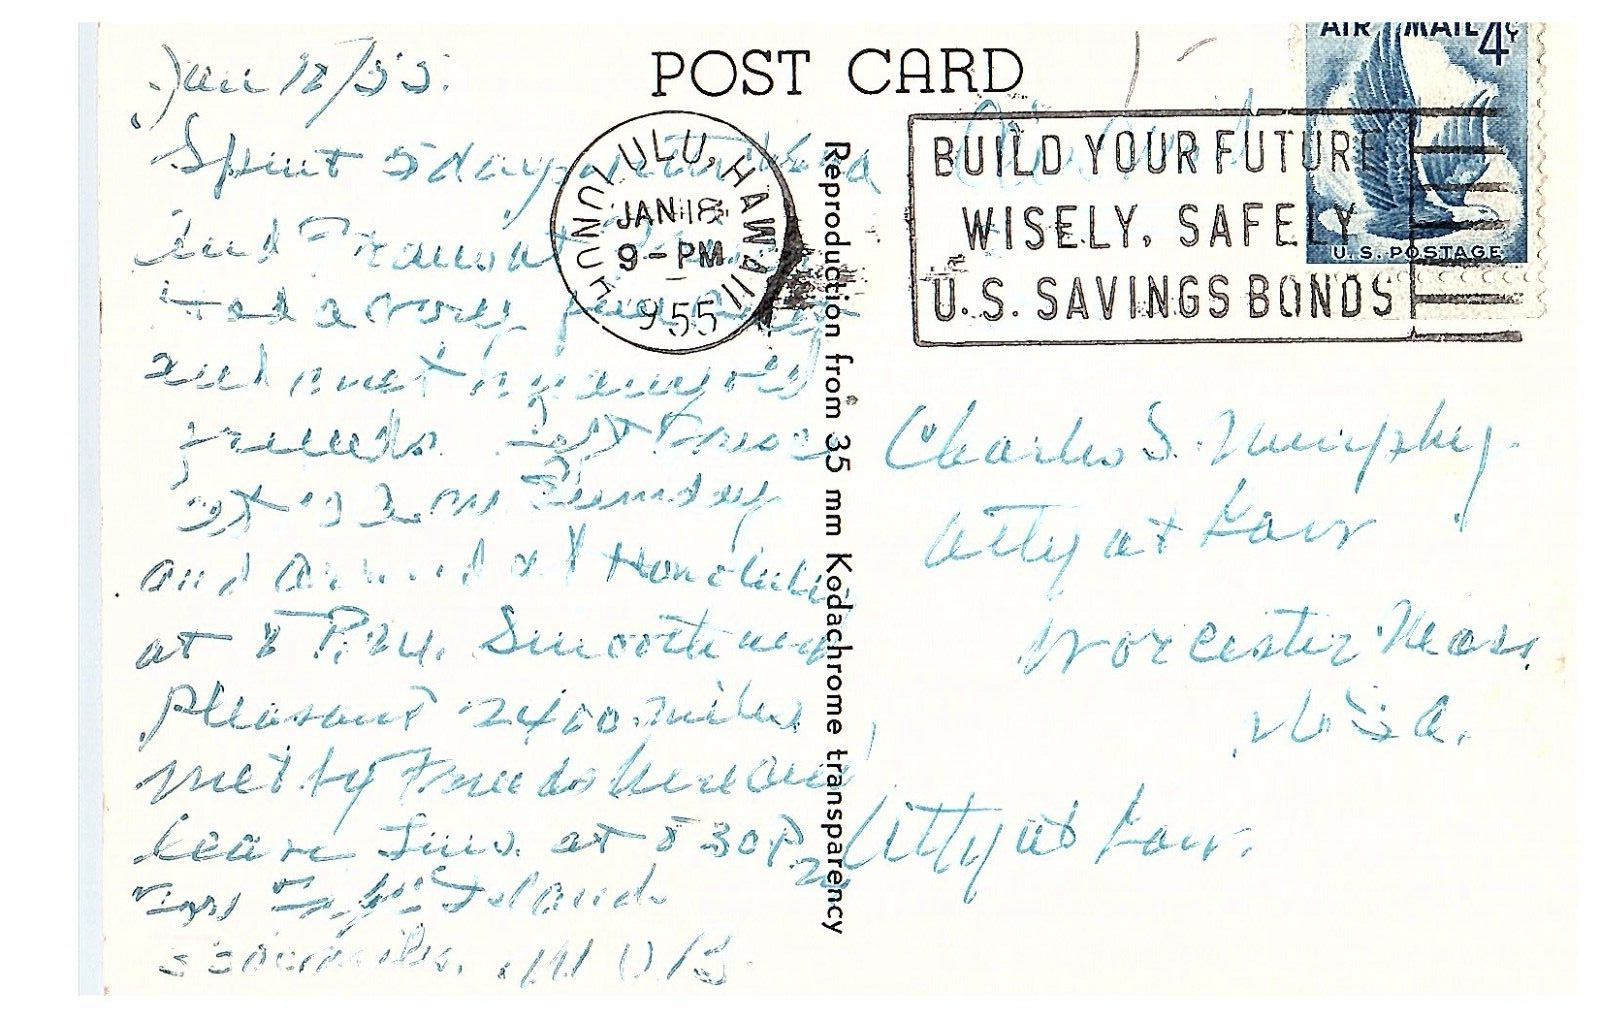 Jan 18/55.
Spent 5 days
and
Had a very
and met many old
friends. Left
at 12 on Sunday
and arrived at Honolulu
at 8 P.M. Smooth and
pleasant 2400 miles
met by friends here and
leave Tues. at 830 P.M.
for Fiji Islands
miles.
POST CARD
Air Mail
AIR MAIL 4¢
U.S. POSTAGE
HONOLULU, HAWAII
JAN 18
9-PM
1955
BUILD YOUR FUTURE
WISELY, SAFELY
U.S. SAVINGS BONDS
Reproduction from 35 mm Kodachrome transparency
Charles S. Murphy.
Atty at Law
Worcester Mass.
U.S.A.
Atty at Law.